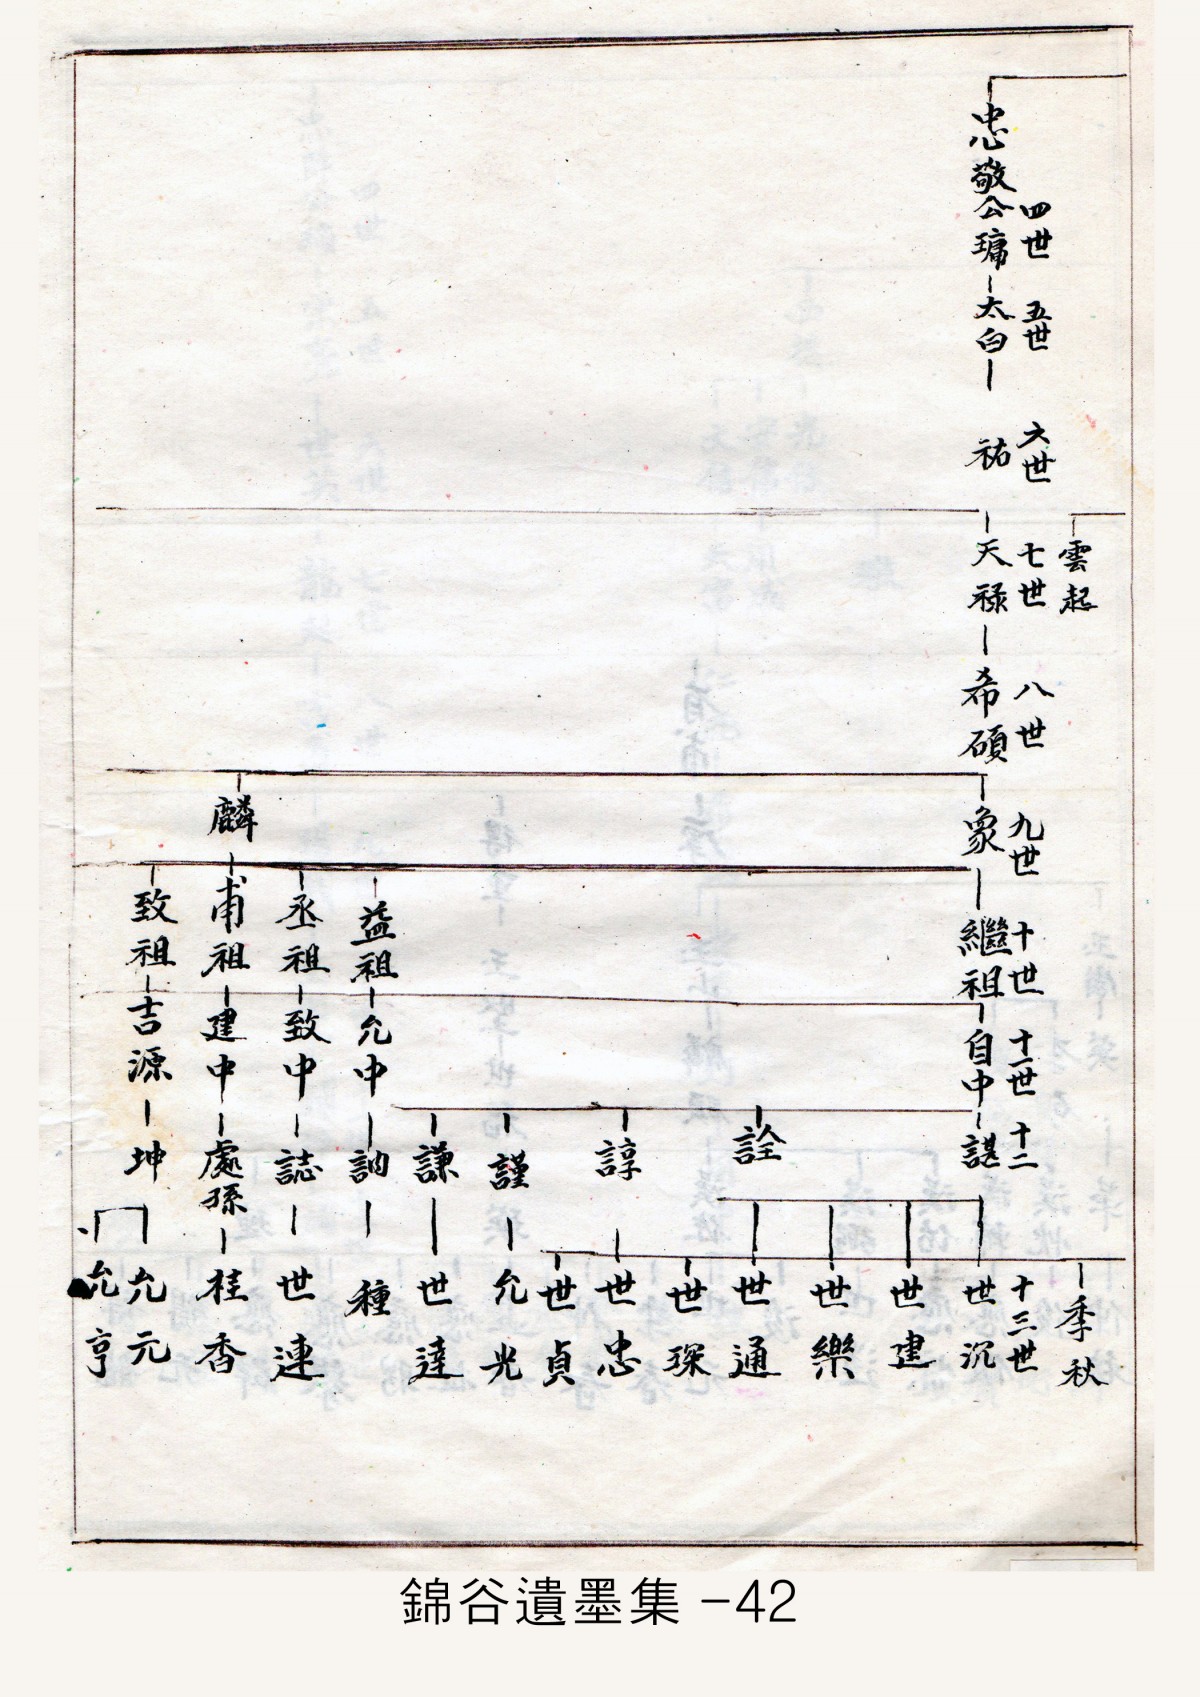 雲起
季秋
四世 五世 六世 七世 八世 九世 十世 十一世 十二 十三世
忠敬公瑭 太白 祐 天祿 希碩 象 繼祖 自中 諶 世沉
世建
世樂
詮 世通
世琛
諄 世忠
世貞
謹 允光
謙 世達
益祖 允中 訥 種
丞祖 致中 誌 世連
麟 甫祖 建中 處孫 桂香
致祖 吉源 坤 允元
允亨
錦谷遺墨集 -42